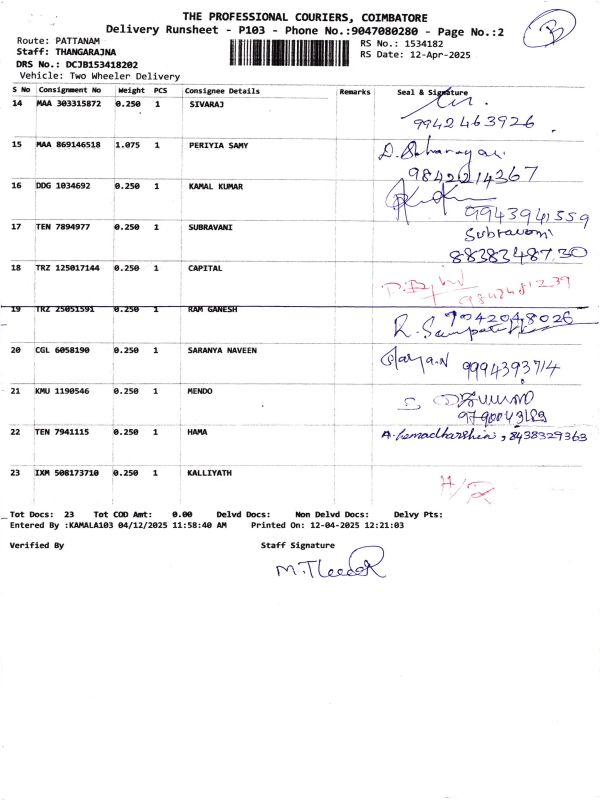 THE PROFESSIONAL COURIERS, COIMBATORE
Delivery Runsheet - P103 - Phone No.:9047080280 - Page No.:2
B
Route: PATTANAM
RS No.: 1534182
Staff: THANGARAJNA
RS Date: 12-Apr-2025
DRS No.: DCJB153418202
Vehicle: Two Wheeler Delivery
S No Consignment No Weight PCS Consignee Details Remarks Seal & Signature
14 MAA 303315872 0.250 1 SIVARAJ
9942463926
15 MAA 869146518 1.075 1 PERIYIA SAMY
9842214267
16 DDG 1034692 0.250 1 KAMAL KUMAR
9943941559
17 TEN 7894977 0.250 1 SUBRAVANI Subravani
8838348730
18 TRZ 125017144 0.250 1 CAPITAL
19 TRZ 25051591 0.250 1 RAM GANESH
20 CGL 6058190 0.250 1 SARANYA NAVEEN
9994393714
21 KMU 1190546 0.250 1 MENDO
22 TEN 7941115 0.250 1 HAMA A. Hemadharshin, 8438329363
23 IXM 508173710 0.250 1 KALLIYATH
Tot Docs: 23 Tot COD Amt: 0.00 Delvd Docs: Non Delvd Docs: Delvy Pts:
Entered By :KAMALA103 04/12/2025 11:58:40 AM Printed On: 12-04-2025 12:21:03
Verified By Staff Signature